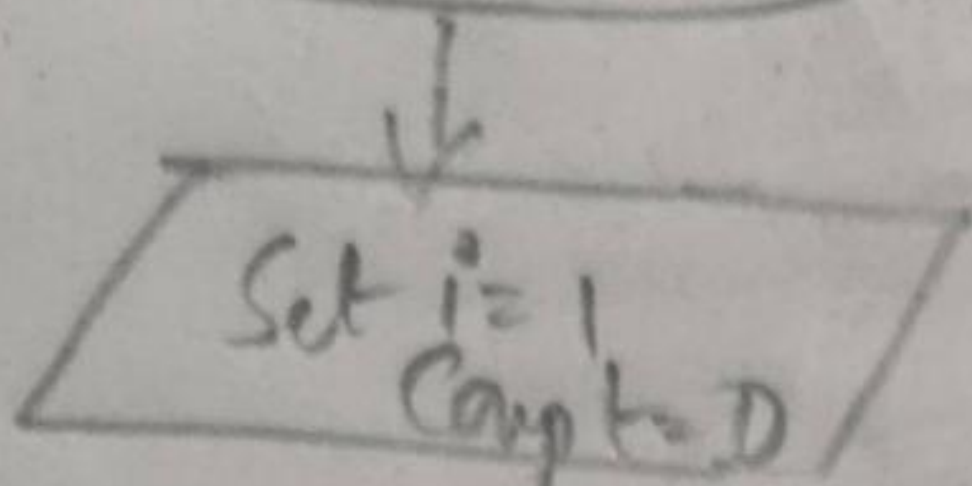 Set i = 1
Count = 0